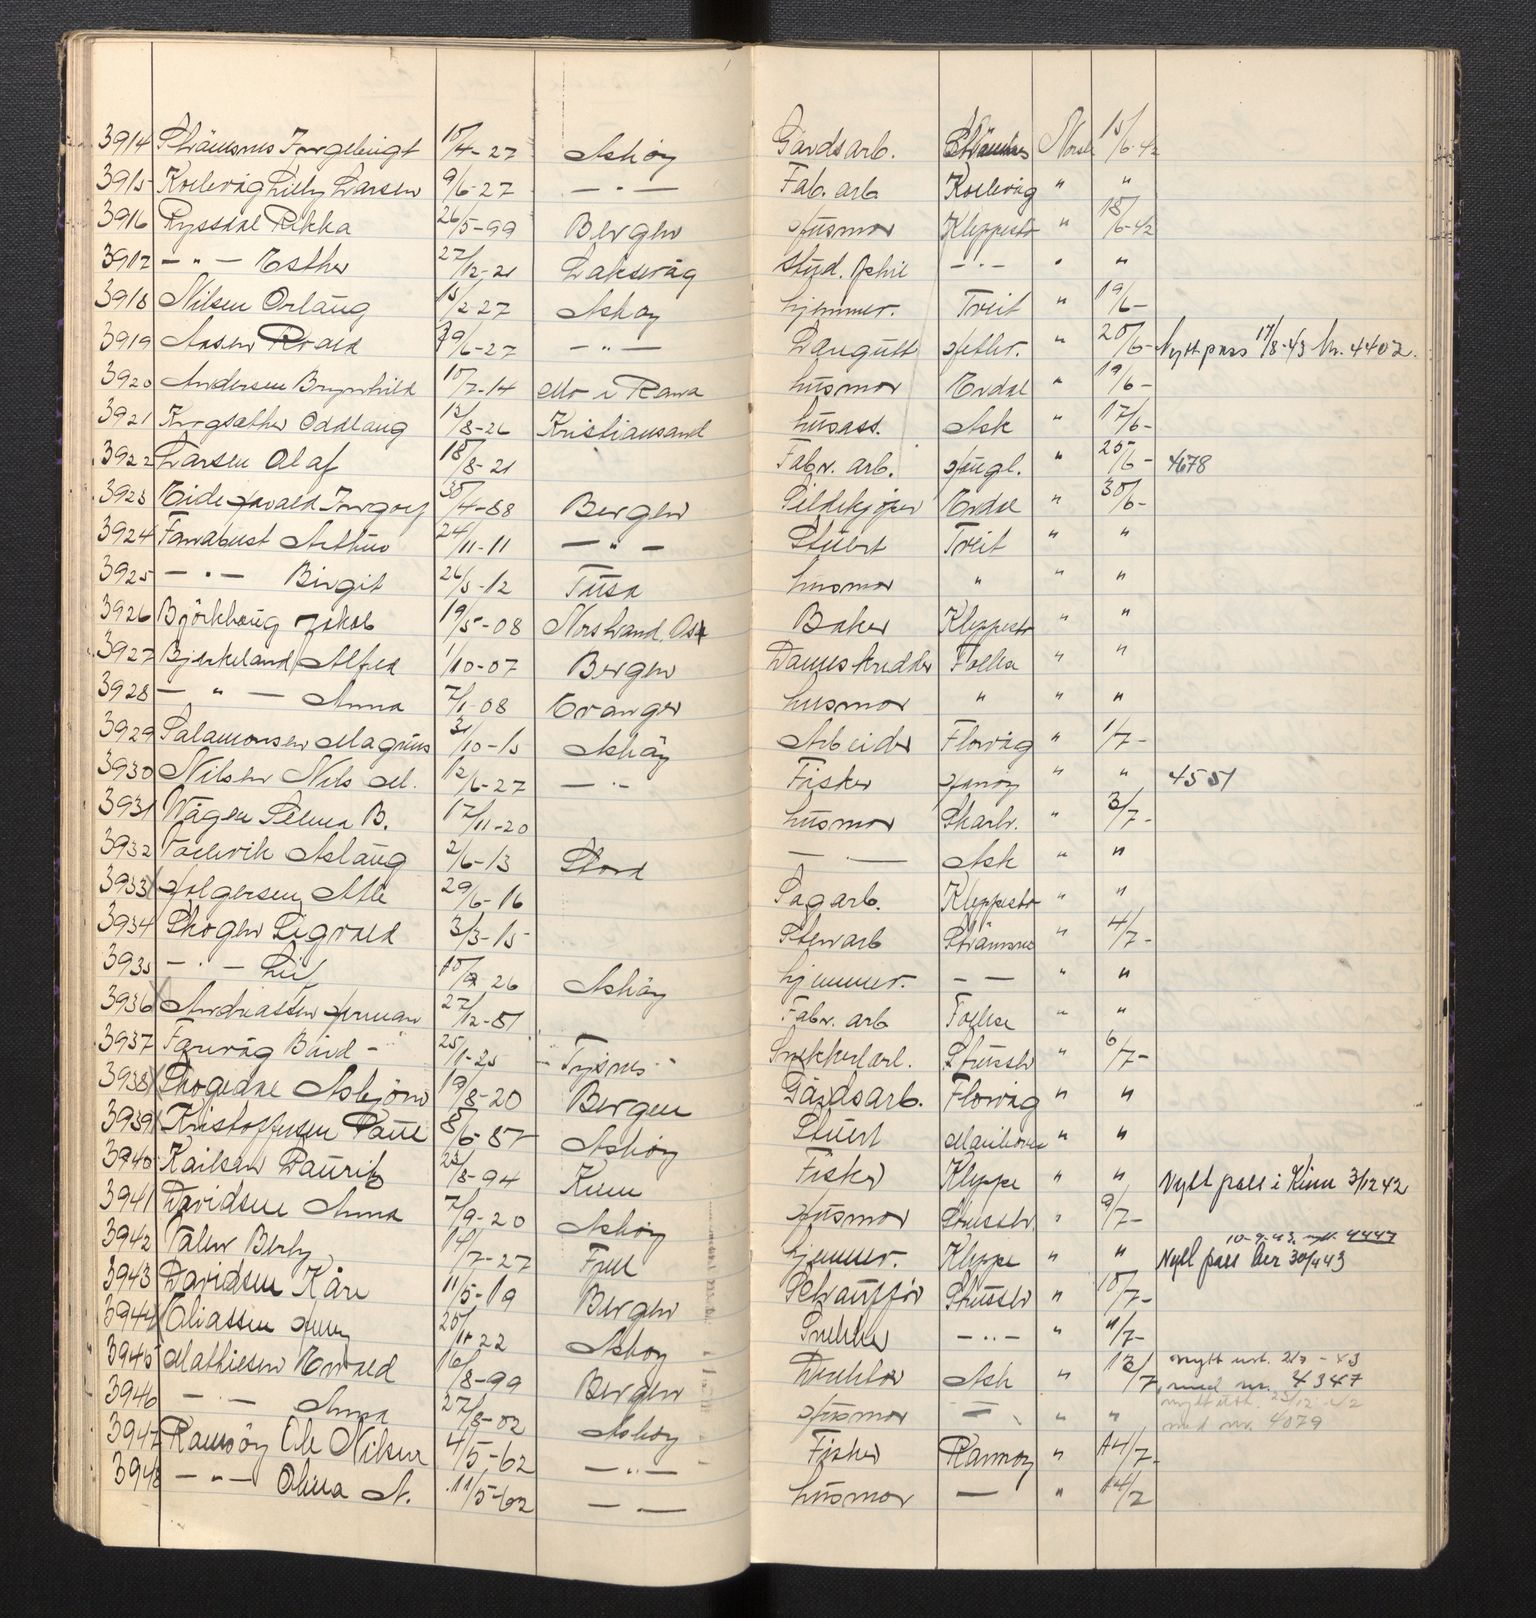 3914 Strämsnes Ingebrigt 15/4-27 Askøy Gårdsarb. Strämsnes Norsk 15/6-42
3915 Kollevåg Lilly Larsen 9/6-27 — " — Fab. arb. Kollevåg " "
3916 Ryssdal Rikka 26/5-99 Bergen Husmor Kleppestø " 18/6-42
3917 — " — Esther 27/12-21 Laksevåg Stud. — " — " "
3918 Nilsen Orlaug 15/2-27 Askøy hjemmev. Treit " 19/6-
3919 Aasen Roald 29/6-27 — " — Laugutt Hetlv. " 20/6- Nytt pass 17/8-43 Nr. 4402.
3920 Andersen Brynhild 10/7-14 Mo i Rana husmor Erdal " 19/6-
3921 Krogsæther Oddlaug 13/8-26 Kristiansand husass. Ask " 17/6-
3922 Larsen Olaf 18/8-21 Fabr. arb. Haugl. " 25/6- 4678
3923 Eide Harald Ingolf 30/4-88 Bergen Sildekjøper Erdal " 30/6-
3924 Farrabust Arthur 24/11-11 — " — Stuert Treit " "
3925 — " — Birgit 26/5-12 Fusa husmor " " "
3926 Björkhaug Jakob 19/5-08 Norstrand, Baker Kleppestø " "
3927 Bjerkeland Alfred 1/10-07 Bergen Dameskredder Follesø " "
3928 — " — Anna 7/1-08 Evanger husmor " " "
3929 Salamonsen Magnus 31/10-15 Askøy Arbeider Florvåg " 1/7-
3930 Nilsen Nils M. 12/6-27 — " — Fisker Hanøy " " 4551
3931 Vågen Selma B. 17/11-20 husmor Skarh. " 3/7-
3932 Vallevik Aslaug 2/6-13 Stord — " — Ask " "
3933 Holgersen Atle 29/6-16 Sagarb. Kleppestø " "
3934 Skogen Sigvald 3/3-15 Stenarb Strämsnes " 4/7-
3935 — " — Liv 10/9 26 Askøy hjemmev. — — " "
3936 Andreassen Herman 27/12-81 Fabr. arb Follese " "
3937 Farevåg Bård 25/1-25 Tysnes Snekkerarb. Strussh. " 6/7-
3938 Skogedal Asbjörn 19/8-20 Bergen Gårdsarb. Florvåg " "
3939 Kristoffersen Paul 8/6-87 Askøy Stuert Marikoven " "
3940 Karlsen Laurits 23/8-94 Kinn Fisker Kleppe " " Nytt pass i Kinn 3/12 42
3941 Davidsen Anna 7/9-20 Askøy Husmor Strusshv. " 9/7-
3942 Valen Berly 14/7-27 Hjemmev. Kleppe " " 10-9-43 nytt. 4447
Nytt pass her 30/4 43
3943 Davidsen Kåre 11/5-19 Bergen Schauffør Strussh " 10/7-
3944 Eliassen Henry 20/11-22 Askøy Snekker — " — " 11/7-
3945 Mathiesen Ervald 16/8-99 Bergen Direktør Ask " 13/7 nytt utst. 2/7-43
med nr. 4347
3946 — " — Anna 27/8-02 Askøy Husmor — " — " " nytt utst. 23/12-42
med nr. 4079
3947 Ramsöy Ole Nilsen 4/5-62 — " — Fisker Ramsøy " 14/7-
3948 — " — Olina N. 11/5-62 — — husmor — " 14/7